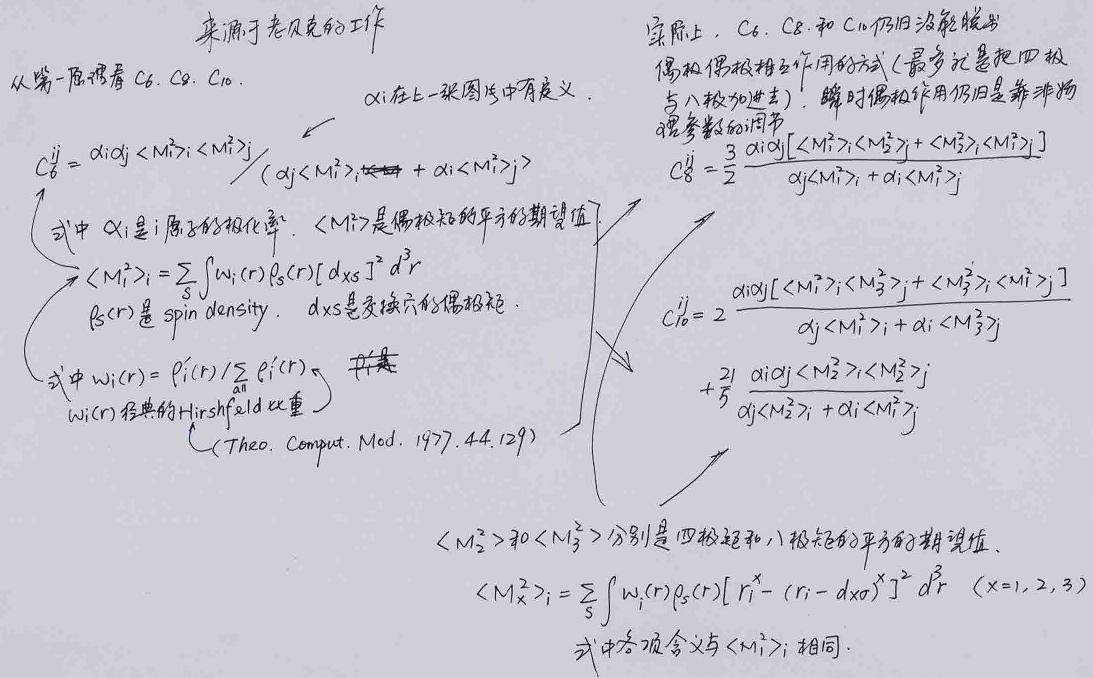 来源于老贝克的工作
从第一原理看 C6. C8. C10.
αi在上一张图片中有定义.
C6^ij = αiαj<M1²>i<M1²>j / (αj<M1²>i + αi<M1²>j)
式中 αi是i原子的极化率. <M1²>是偶极矩的平方的期望值
<M1²>i = Σs∫wi(r)ρs(r)[dxs]² d³r
ρs(r)是 spin density. dxs是交换穴的偶极矩.
式中 wi(r) = ρi'(r)/Σall ρi'(r)
wi(r)经典的Hirshfeld比重
(Theo. Comput. Mod. 1977. 44. 129)
实际上, C6. C8. 和 C10仍旧没能脱出
偶极偶极相互作用的方式(最多就是把四极
与八极加进去). 瞬时偶极作用仍旧是靠非物
理参数的调节
C8^ij = 3/2 αiαj[<M1²>i<M2²>j + <M2²>i<M1²>j] / αj<M1²>i + αi<M1²>j
C10^ij = 2 αiαj[<M1²>i<M3²>j + <M3²>i<M1²>j] / αj<M1²>i + αi<M3²>j
+ 21/5 αiαj<M2²>i<M2²>j / αj<M2²>i + αi<M1²>j
<M2²>和<M3²>分别是四极矩和八极矩的平方的期望值.
<Mx²>i = Σs∫wi(r)ρs(r)[ri^x - (ri - dxσ)^x]² d³r (x=1, 2, 3)
式中各项含义与<M1²>i 相同.